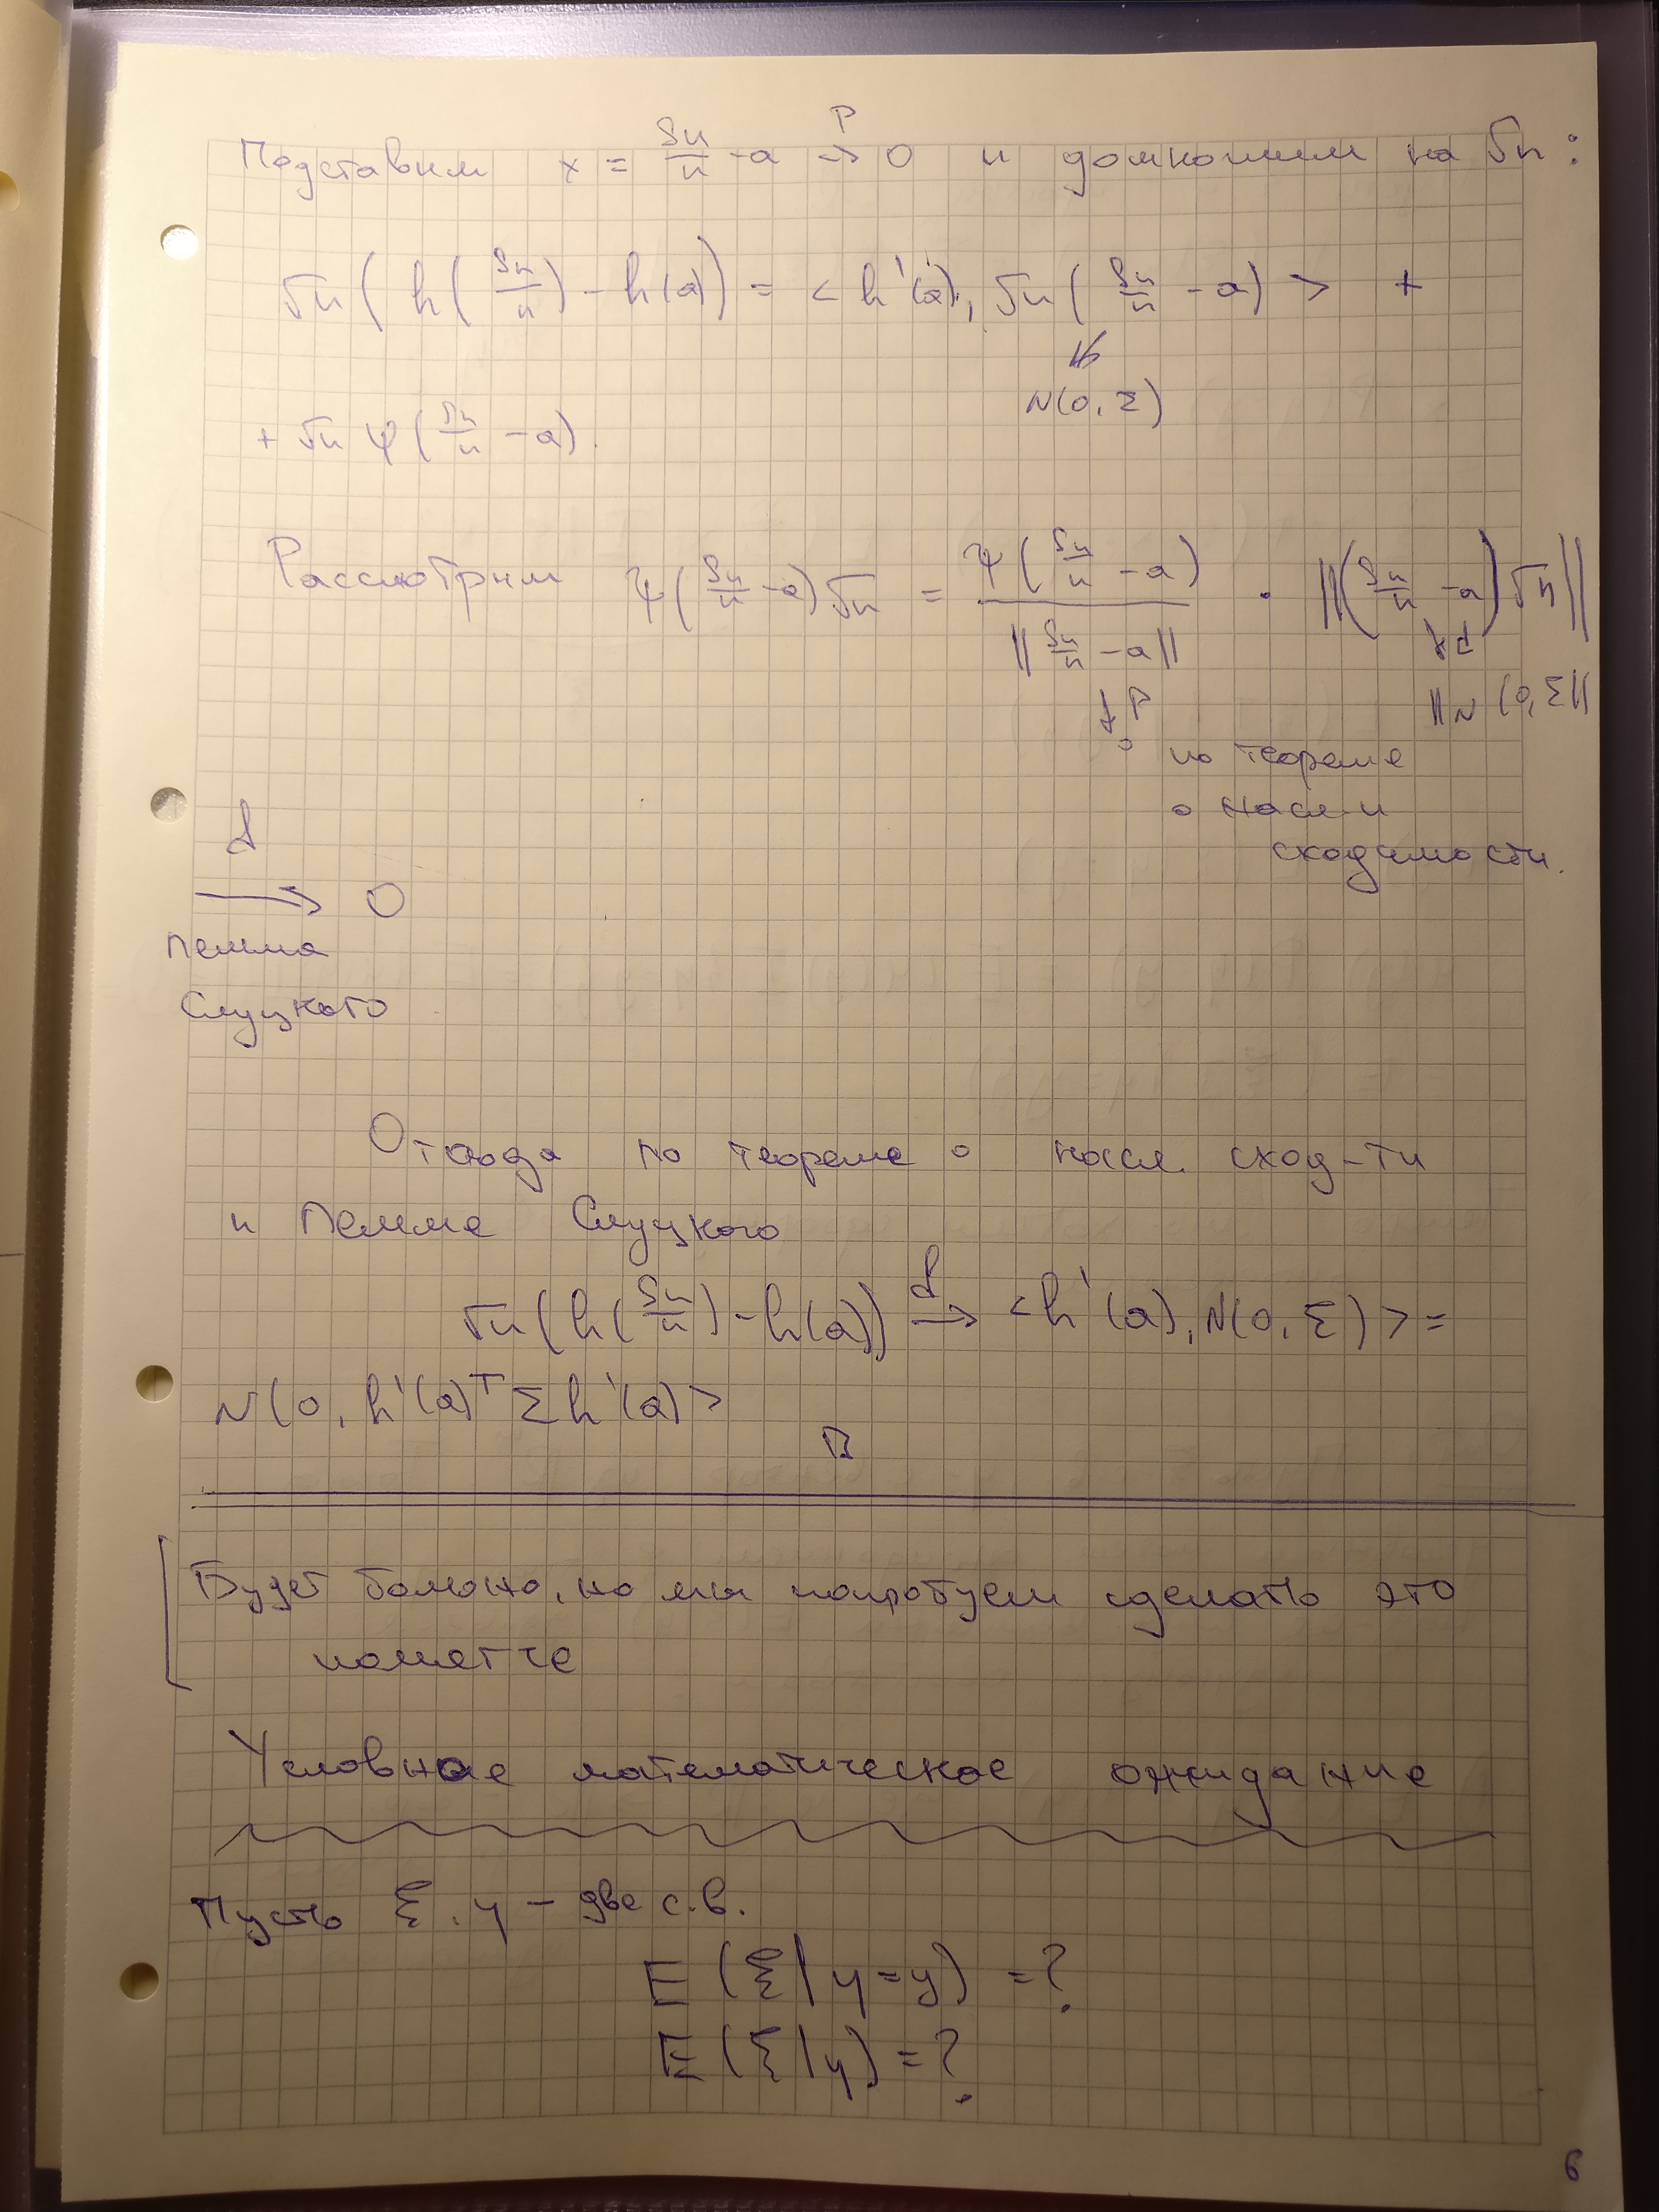 Подставим x = Sn/n - a →P 0 и домножим на √n :
√n ( h( Sn/n ) - h(a) ) = < h'(a), √n ( Sn/n - a) > +
⇓
N(0, Σ)
+ √n ψ( Sn/n - a).
Рассмотрим ψ( Sn/n - a)√n = ψ( Sn/n - a) / || Sn/n - a || · ||( Sn/n - a)√n||
↓P ↓d
0 ||N(0, Σ||
по теореме
о насл-и
сходимости.
d
→ 0
Лемма
Слуцкого
Отсюда по теореме о насл. сход-ти
и Лемме Слуцкого
√n(h( Sn/n ) - h(a)) →d <h'(a), N(0, Σ)> =
N(0, h'(a)ᵀ Σ h'(a)>
□
Будет больно, но мы попробуем сделать это
полегче
Условное математическое ожидание
Пусть ξ, η - две с.в.
E (ξ | η = y) = ?
E (ξ | η) = ?
6